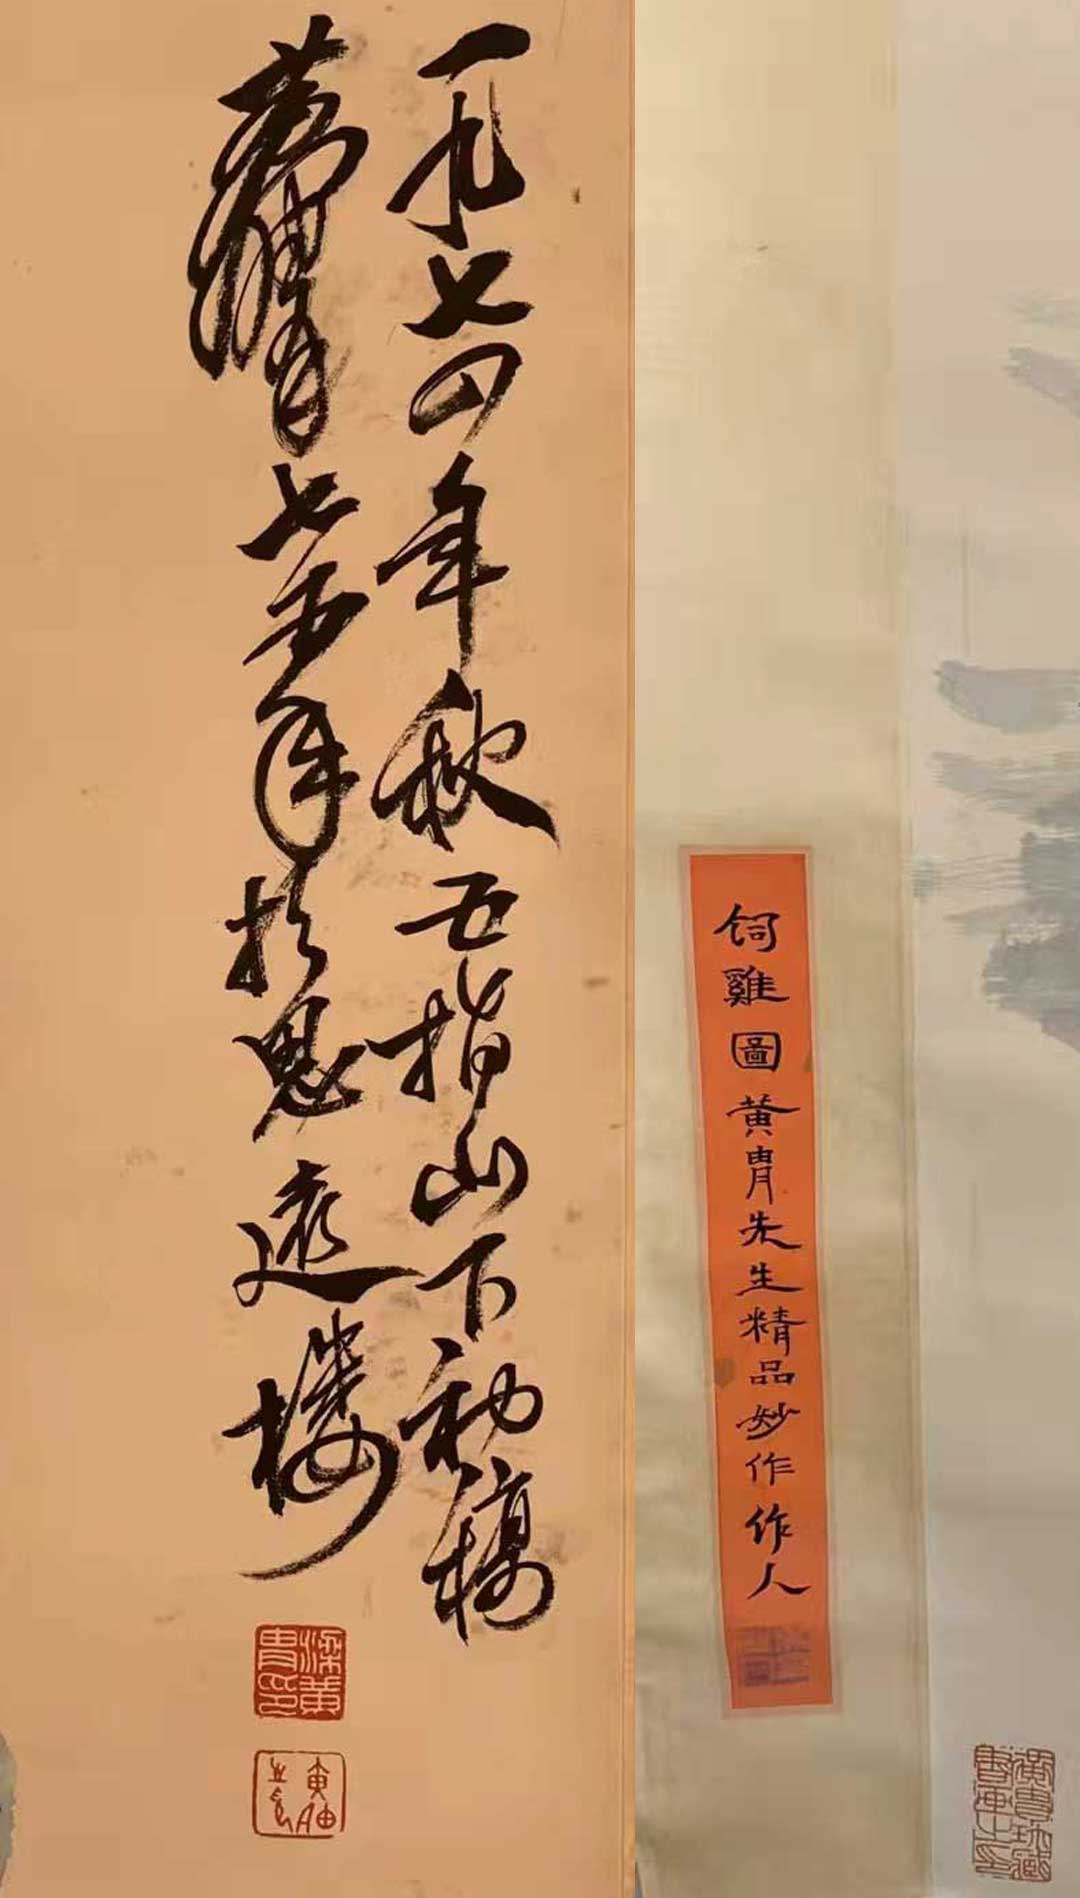 一九七四年秋五指山下初稿
黄胄七五年于思远楼
梁黄胄印
饲雞圖黄胄先生精品妙作作人